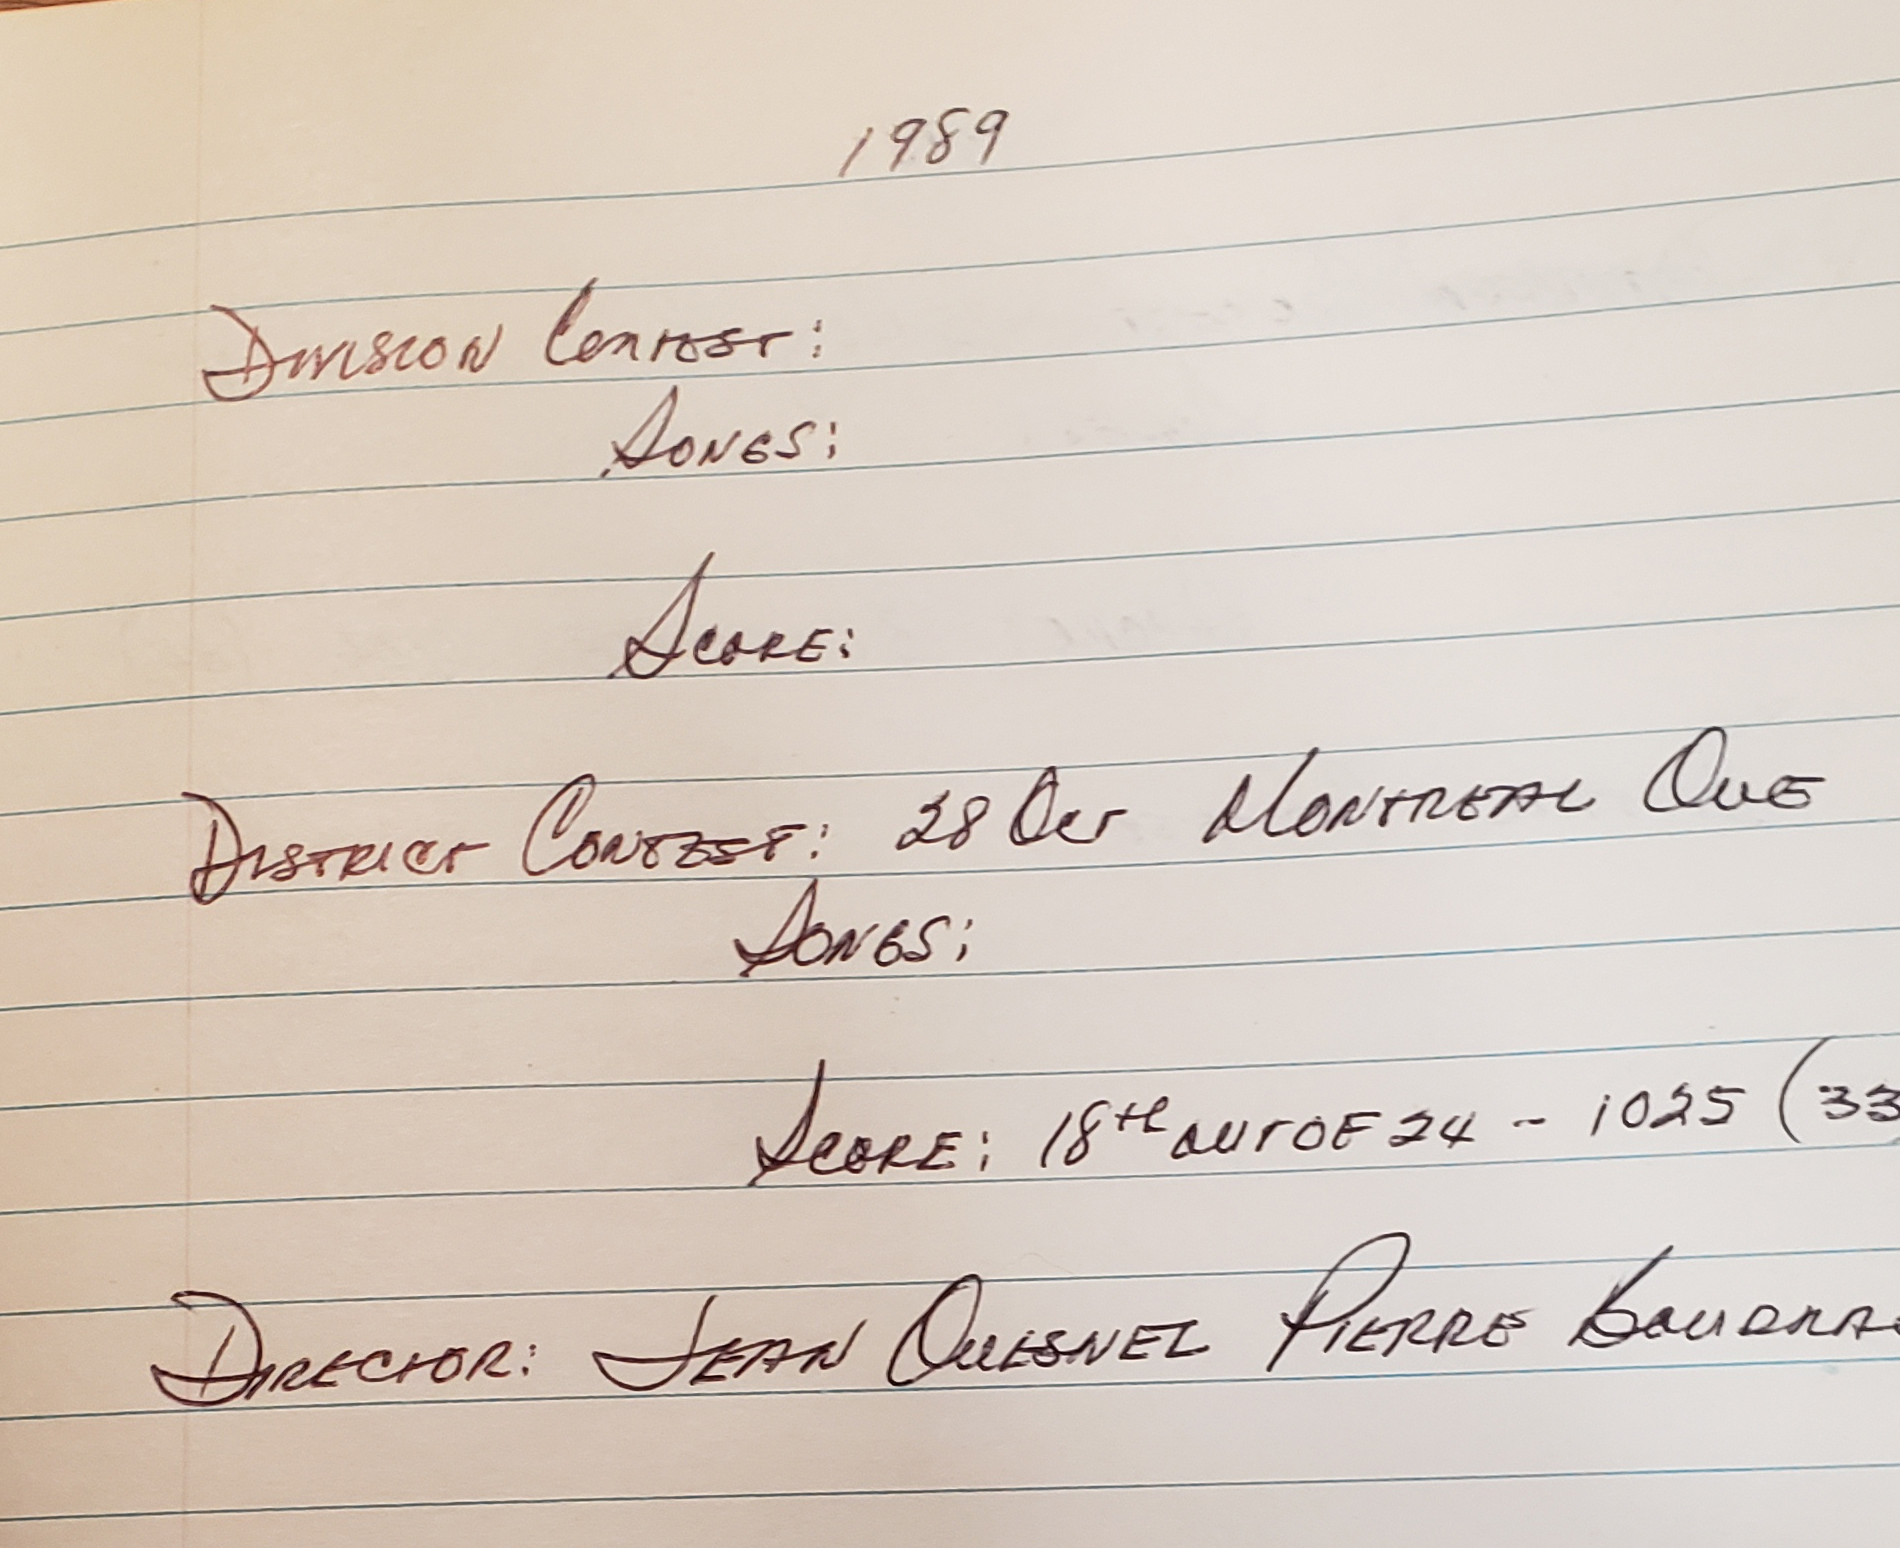 1989
DIVISION CONTEST:
SONGS:
SCORE:
DISTRICT CONTEST: 28 OCT MONTREAL QUE
SONGS:
SCORE: 18th OUT OF 24 - 1025 (33
DIRECTOR: JEAN QUESNEL PIERRE